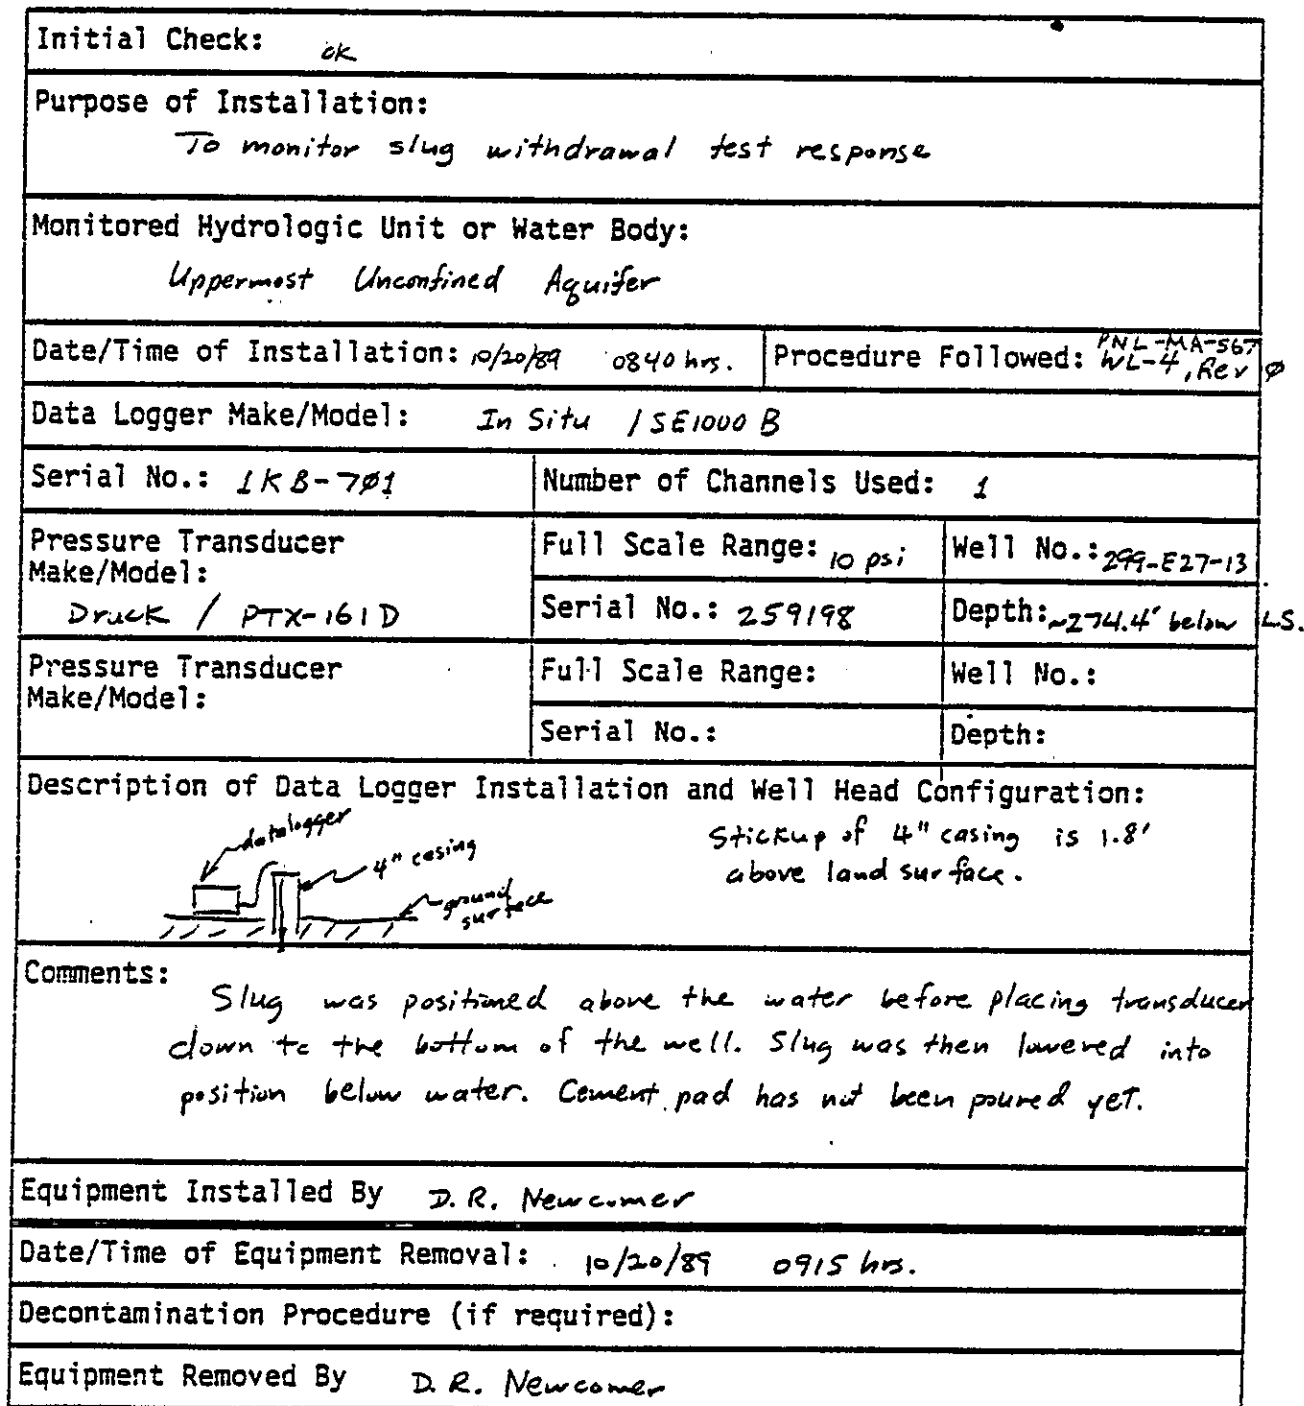 Initial Check: ok
Purpose of Installation:
To monitor slug withdrawal test response
Monitored Hydrologic Unit or Water Body:
Uppermost Unconfined Aquifer
Date/Time of Installation: 10/20/89 0840 hrs. Procedure Followed: PNL-MA-567
WL-4, Rev Ø
Data Logger Make/Model: In Situ / SE1000 B
Serial No.: 1KB-7Ø1 Number of Channels Used: 1
Pressure Transducer
Make/Model:
Druck / PTX-161D
Full Scale Range: 10 psi Well No.: 299-E27-13
Serial No.: 259198 Depth: ~274.4' below L.S.
Pressure Transducer
Make/Model:
Full Scale Range: Well No.:
Serial No.: Depth:
Description of Data Logger Installation and Well Head Configuration:
datalogger
4" casing
ground
surface
Stickup of 4" casing is 1.8'
above land surface.
Comments:
Slug was positioned above the water before placing transducer
down to the bottom of the well. Slug was then lowered into
position below water. Cement pad has not been poured yet.
Equipment Installed By D. R. Newcomer
Date/Time of Equipment Removal: 10/20/89 0915 hrs.
Decontamination Procedure (if required):
Equipment Removed By D. R. Newcomer